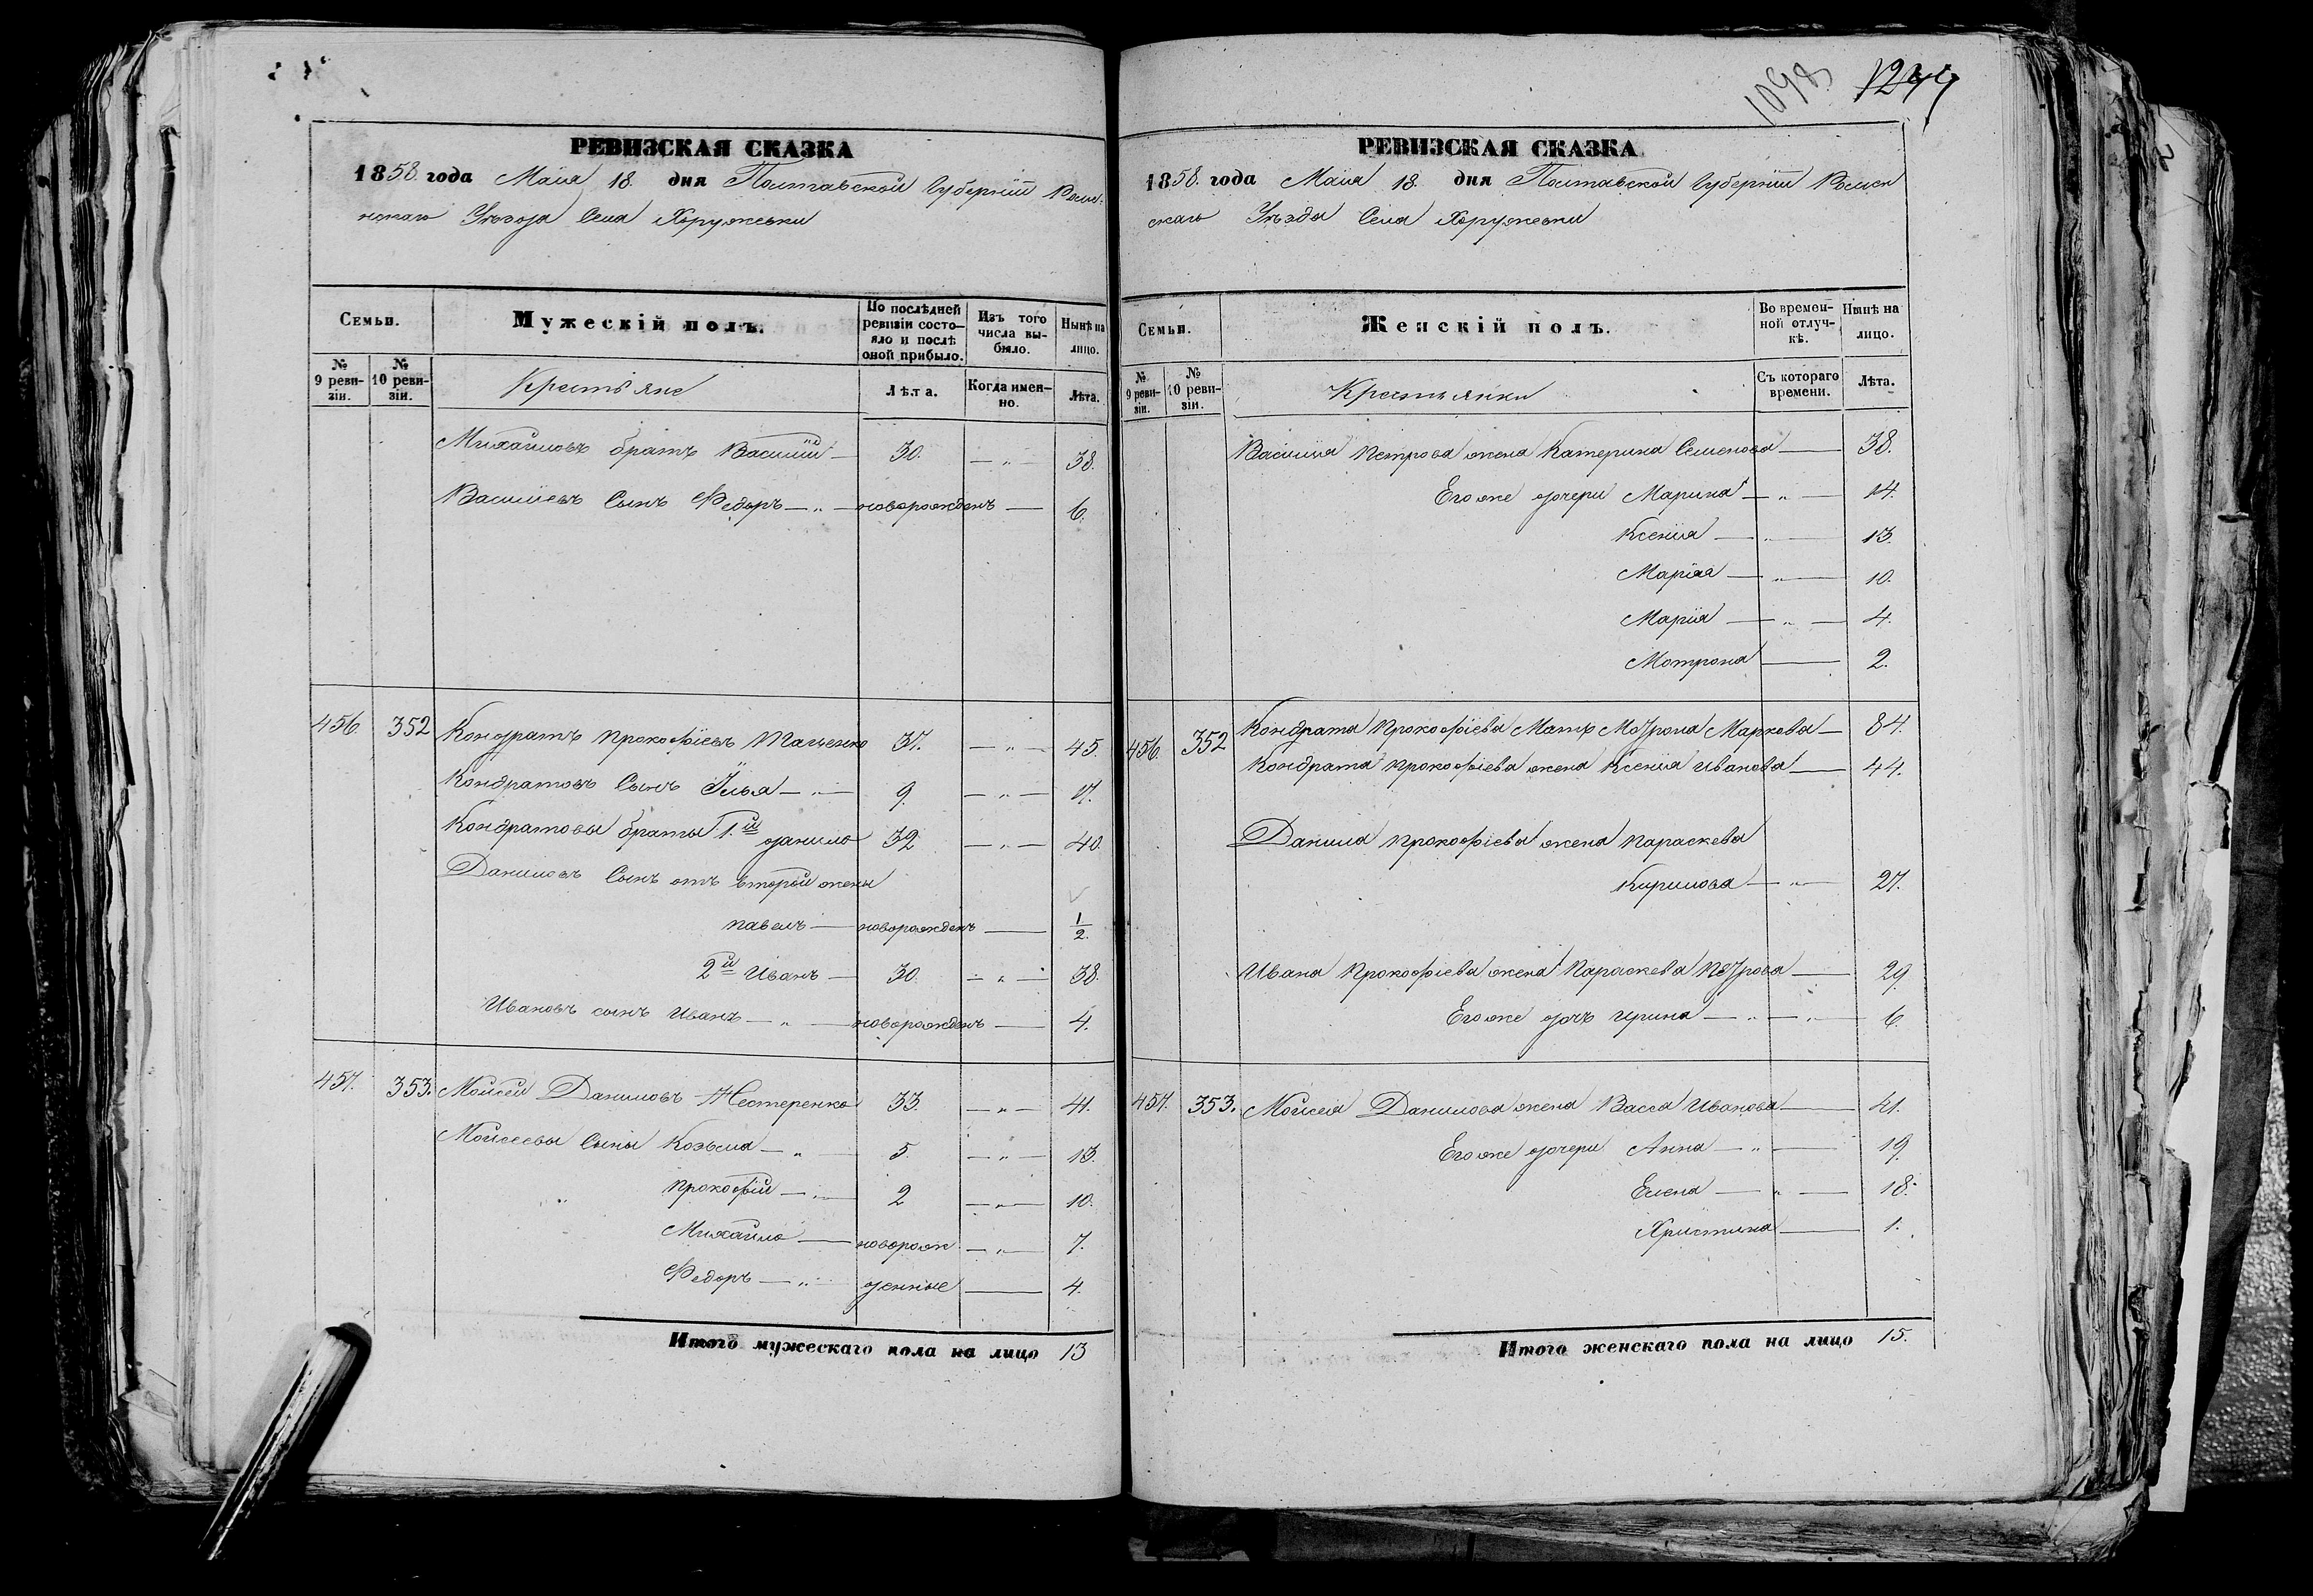 1098 1244
РЕВИЗСКАЯ СКАЗКА
1858. года Маія 18. дня Полтавской Губерніи Ромен-
нскаго Уѣзда Села Хоружевки
Семьи.
Мужескій полъ.
По послѣдней ревизіи состо-яло и послѣ оной прибыло.
Изъ того числа вы-было.
Нынѣ на лицо.
№ 9 реви-зіи.
№ 10 реви-зіи.
Крестьяне
Лѣта.
Когда имен-но.
Лѣта.
Михайловъ братъ Василій — 30. — „ — 38.
Васильевъ Сынъ Федоръ — „ — новорожденъ — 6.
456. 352 Кондратъ Прокофіевъ Тащенко 37. — „ — 45.
Кондратовъ Сынъ Илья — „ — 9. — „ — 17.
Кондратовы браты 1.й Данило 32 — „ — 40.
Даниловъ Сынъ отъ второй жены
Павелъ — новорожденъ — 1/2.
2й Иванъ — 30. — „ — 38.
Ивановъ сынъ Иванъ — „ — новорожденъ — 4.
457. 353. Мойсей Даниловъ Нестеренко 33. — „ — 41.
Мойсеевы Сыны Козьма — „ — 5. — „ — 13.
„ Прокофій — „ — 2 — „ — 10.
Михайло — новорож — „ — 7.
Федоръ — „ — денные — 4.
Итого мужескаго пола на лицо 13
РЕВИЗСКАЯ СКАЗКА
1858. года Маія 18. дня Полтавской Губерніи Ромен
скаго Уѣзда Села Хоружевки
Семьи.
Женскій полъ.
Во времен-ной отлуч-кѣ.
Нынѣ на лицо.
№ 9 реви-зіи.
№ 10 реви-зіи.
Крестьянки
Съ котораго времени.
Лѣта.
Василія Петрова жена Катерина Семенова — 38.
Его же дочери Марина — „ — 14.
Ксенія — „ — 13.
Марія — „ — 10.
Марія — „ — 4.
Мотрона — 2.
456. 352 Кондрата Прокофіева Мать Мотрона Маркова — 84.
Кондрата Прокофіева жена Ксенія Иванова — 44.
Данила Прокофіева жена Параскева
Кирилова — „ — 27.
Ивана Прокофіева жена Параскева Петрова — 29
Его же дочь Ирина — „ — „ — 6.
457. 353. Мойсея Данилова жена Васса Иванова — 41.
Его же дочери Анна — „ — 19.
Елена — „ — 18.
Христина — 1.
Итого женскаго пола на лицо 15.